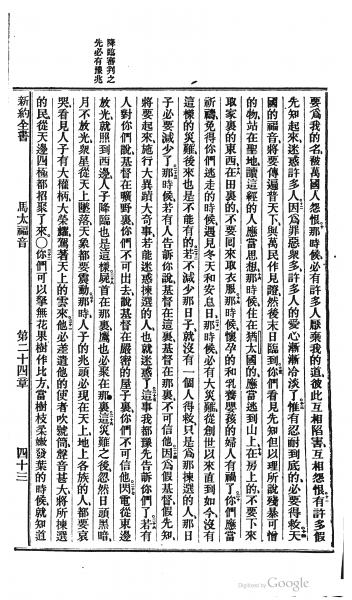 降臨審判之
先必有豫兆
要爲我的名被萬國人怨恨那時候必有許多人厭棄我的道彼此互相陷害互相怨恨有許多假
先知起來迷惑許多人因爲罪惡衆多許多人的愛心漸漸冷淡了惟有忍耐到底的必要得救天
國的福音將要傳遍普天下與萬民作見證然後末日臨到你們看見先知但以理所說殘暴可憎
的物站在聖地讀這經的人應當思想那時候住在猶太國的應當逃到山上在房上的不要下來
取家裏的東西在田裏的不要囘來取衣服那時候懷孕的和乳養嬰孩的婦人有禍了你們應當
祈禱免得你們逃走的時候遇見冬天和安息日那時候必有大災難從創世以來直到如今沒有
這樣的災難後來也是不能有的若不減少那日子就沒有一個人得救只是爲那揀選的人那日
子必要減少了那時候若有人告訴你們說基督在這裏基督在那裏不可信他因爲假基督假先知
將要起來施行大異蹟大奇事若能迷惑揀選的人也就迷惑了這事我都豫先告訴你們了若有
人對你們說基督在曠野裏你們不可出去說基督在嚴密的屋子裏你們不可信他閃電從東邊
放光就照到西邊人子降臨也是這樣屍首在那裏鷹也必聚在那裏這災難之後忽然日頭黑暗
月不放光衆星從天上墜落天象都要震動那時人子的兆頭必現在天上地上各族的人都要哀
哭看見人子有大權柄大榮耀駕著天上的雲來他必差遣他的使者吹號筒聲音甚大將所揀選
的民從天邊四極都招聚了來○你們可以拏無花果樹作比方當樹枝柔嫩發葉的時候就知道
新約全書 馬太福音 第二十四章 四十三
Digitized by Google